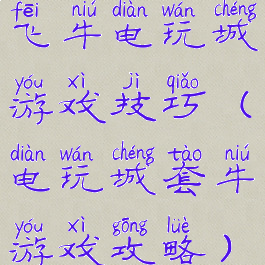 fēi niú diàn wán chéng
飞牛电玩城
yóu xì jì qiǎo
游戏技巧（
diàn wán chéng tào niú
电玩城套牛
yóu xì gōng lüè
游戏攻略）